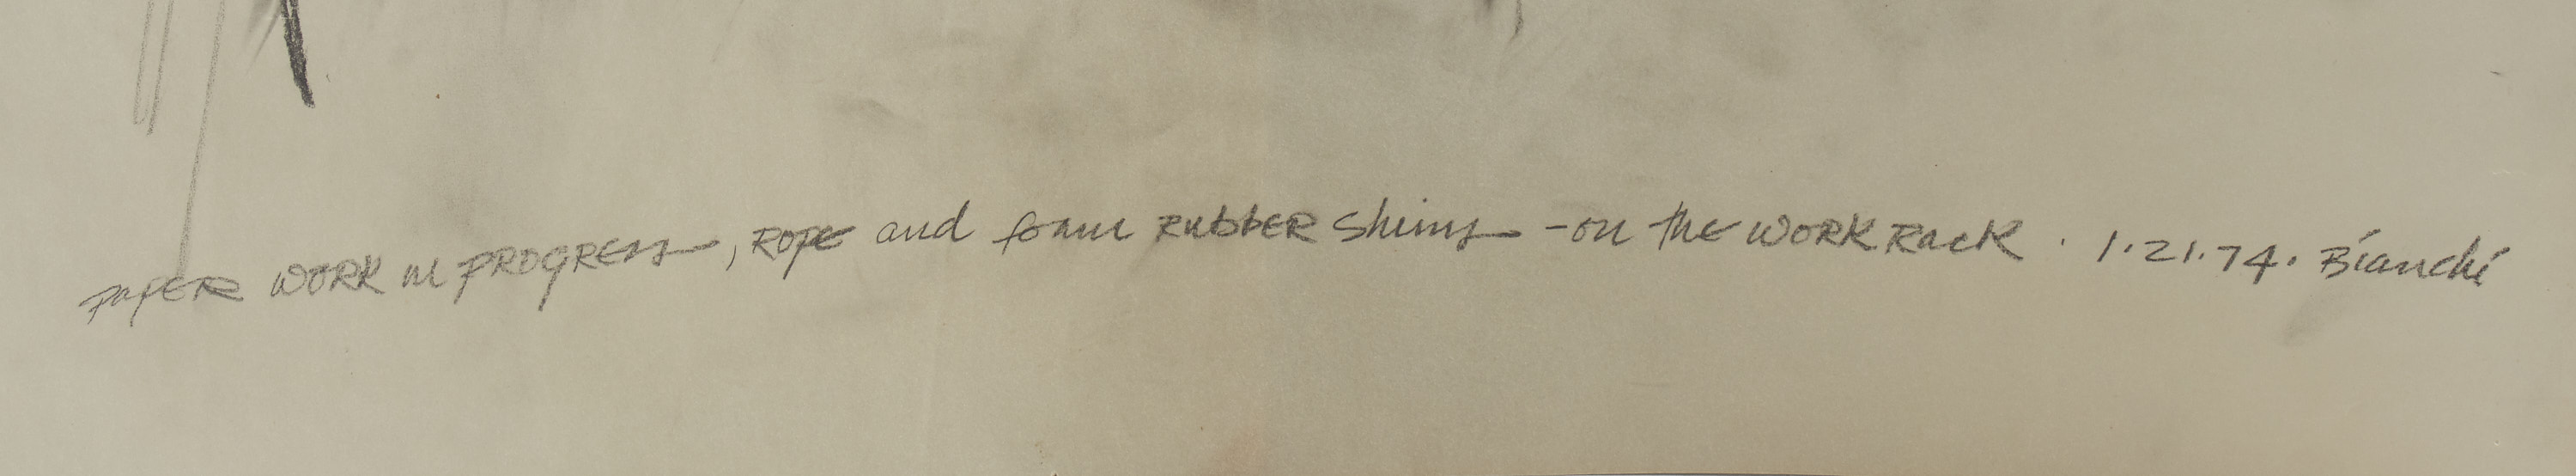 PAPER WORK IN PROGRESS, ROPE and foam RUBBER Shims - on the WORK RACK . 1.21.74. Bianchi